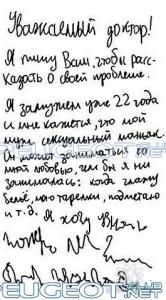 Уважаемый доктор!
Я пишу Вам, чтобы рас-
сказать о своей проблеме.
Я замужем уже 22 года
и мне кажется, что мой
муж сексуальный маньяк.
Он может заниматься со
мной любовью, чем бы я ни
занималась: когда глажу
бельё, мою тарелки, подметаю
и т.д. Я хочу
PEUGEOT.NET